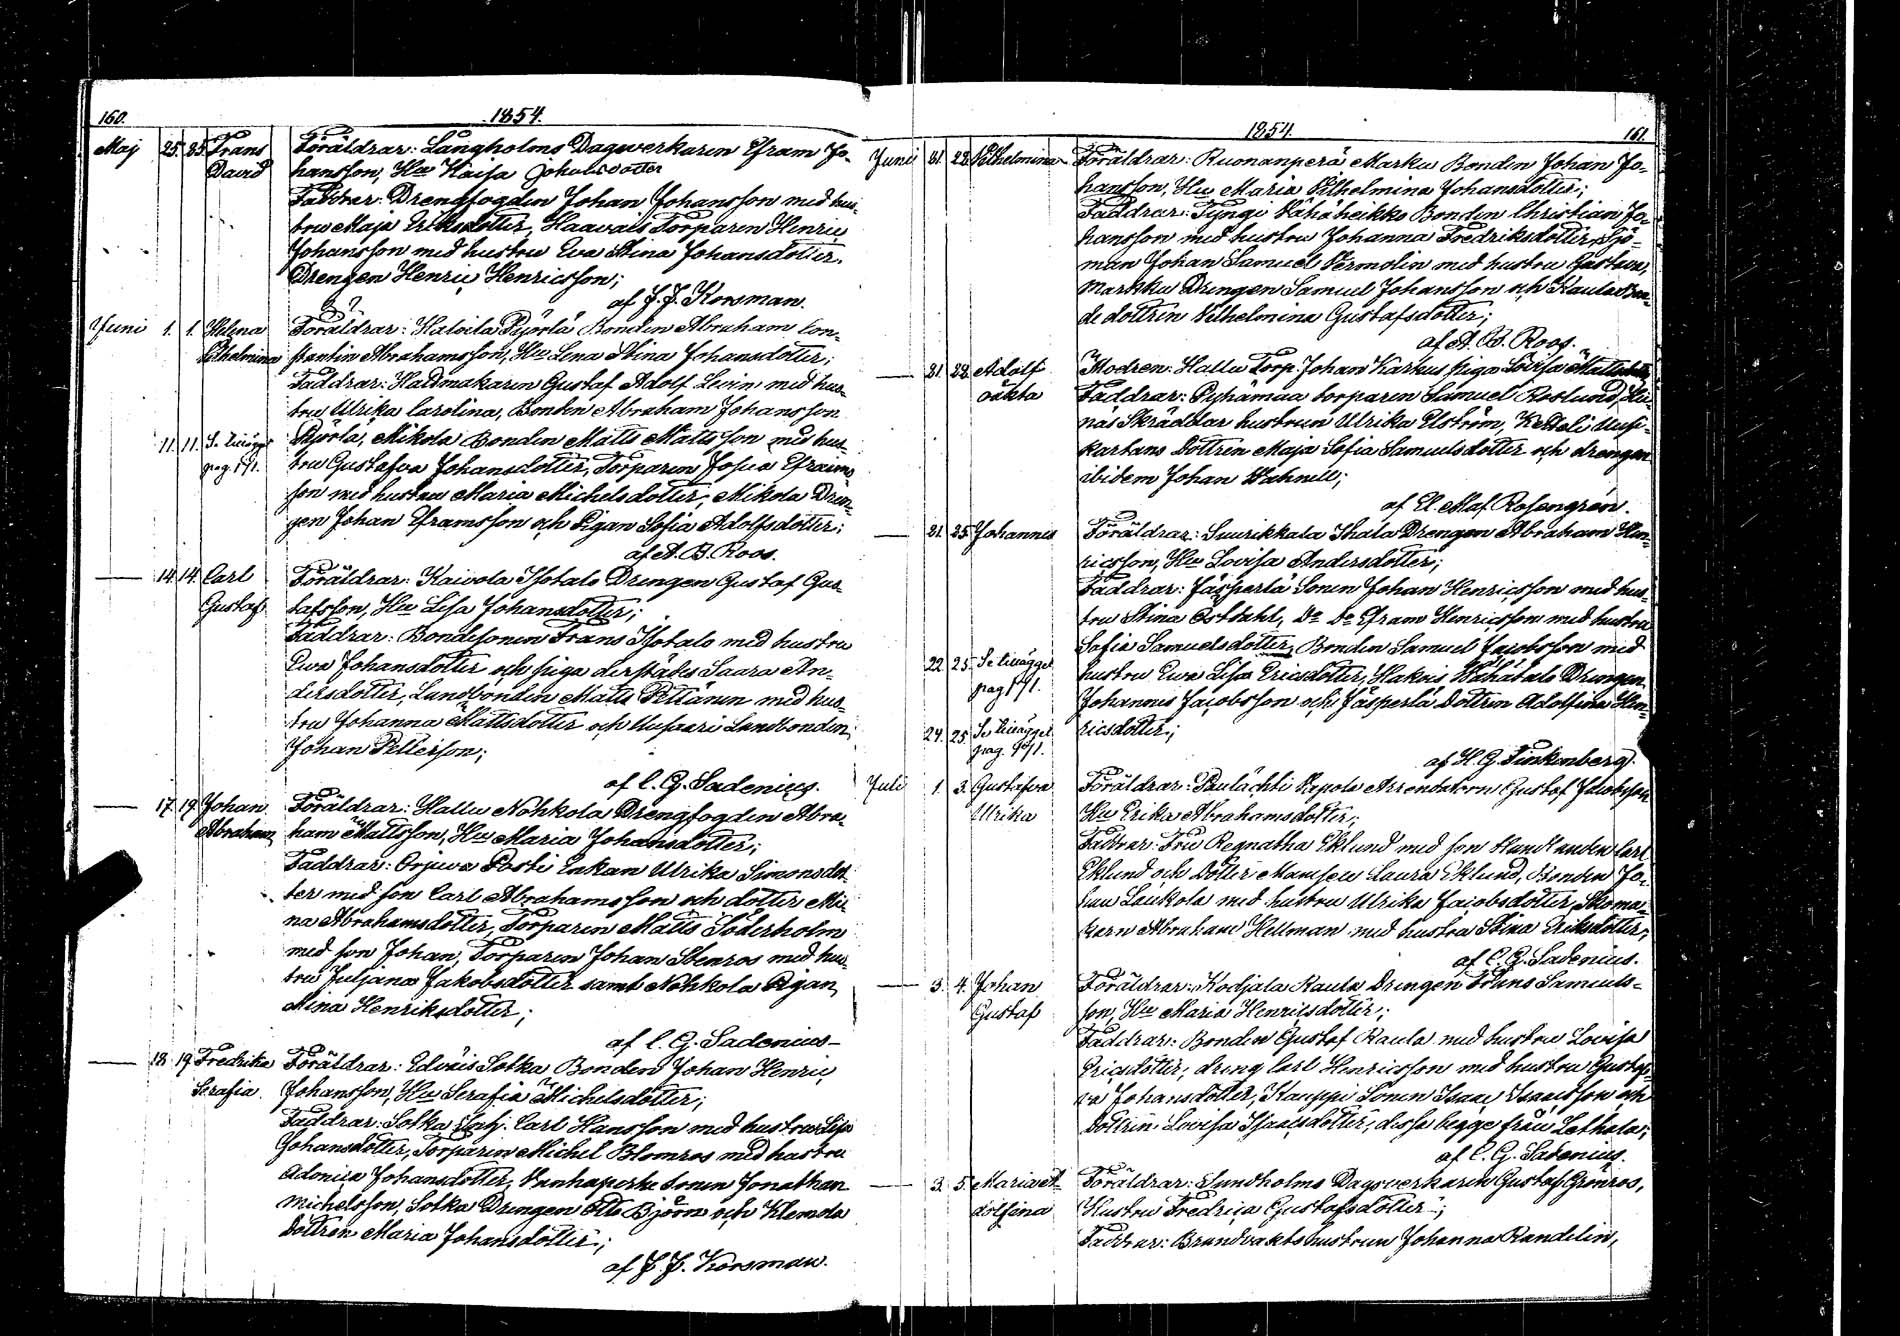 160.
1854.
Maj 25. 25. Frans Föräldrar: Långholms Dagwerkaren Efram Jo-
David hansson, Hu Kaisa Johansdotter
Faddrar: Drengfogden Johan Johansson med hus-
tru Maja Eriksdotter, Haavais Torparen Henric
Johansson med hustru Eva Stina Johansdotter.
Drengen Henric Henricsson;
af J. J. Korsman.
Juni 1. 1. Helena Föräldrar: Haloila Pyörlä Bonden Abraham Con-
Vilhelmina stantin Abrahamsson, Hu Lena Stina Johansdotter;
Faddrar: Hattmakaren Gustaf Adolf Levin med hus-
tru Ulrika Carolina, Bonden Abraham Johansson
11. 11. Se tillägget Pyörlä, Mikola Bonden Matts Mattsson med hus-
pag. 171. tru Gustafva Johansdotter, Torparen Josua Efraims
son med hustru Maria Michelsdotter, Mikola Dren-
gen Johan Eframsson och Pigan Sofia Adolfsdotter;
af A. B. Roos.
14. 14. Carl Föräldrar: Kaivola Isotalo Drengen Gustaf Gus-
Gustaf tafsson, Hu Lisa Johansdotter;
Faddrar: Bondesonen Frans Isotalo med hustru
Ewa Johansdotter och piga derstädes Saara An-
dersdotter, Landbonden Matts med hus-
tru Johanna Mattsdotter och Landbonden
Johan Pettersson;
af C. G. Sadenius.
17. 19. Johan Föräldrar: Hallu Nohkola Drengfogden Abra-
Abraham ham Mattsson, Hu Maria Johansdotter;
Faddrar: Orjuva Posti Enkan Ulrika Simonsdot-
ter med son Carl Abrahamsson och dotter Mi-
na Abrahamsdotter, Torparen Matts Söderholm
med son Johan, Torparen Johan Stenros med hus-
tru Juljana Jakobsdotter samt Nohkola Pigan
Mina Henriksdotter;
af C. G. Sadenius
18. 19. Fredrika Föräldrar: Edväis Sotka Bonden Johan Henric
Serafia Johansson, Hu Serafia Michelsdotter;
Faddrar: Sotka Carl Hansson med hustru Lisa
Johansdotter, Torparen Michel Blomros med hustru
Adonica Johansdotter, Vanhaperke Sonen Jonathan
Michelsson, Sotka Drengen Otto Björn och Klemola
dottren Maria Johansdotter;
af J. J. Korsman.
1854.
161.
Junii 21. 22. Vilhelmina Föräldrar: Ruonanperä Marku Bonden Johan Jo-
hansson, Hu Maria Vilhelmina Johansdotter;
Faddrar: Tyngi Vähäheikko Bonden Christian Jo-
hansson med hustru Johanna Fredriksdotter, Sjö-
man Johan Samuel Vermolin med hustru Gustava,
Markku Drengen Samuel Johansson och Raula Bon-
de dottren Vilhelmina Gustafsdotter;
af A. B. Roos.
21. 22. Adolf Modren: Hallu Torp. Johan Karhus piga Lovisa
oäkta Faddrar: Pyhämaa torparen Samuel Roslund,
näs Skräddar hustrun Ulrika Elström, Ketteli
kartano Dottren Maja Sofia Samuelsdotter och drengen
ibidem Johan Wahnell;
af El. Alaf Rosengrén.
21. 25. Johannes Föräldrar: Suurikkala Ihala Drengen Abraham Hen-
ricsson, Hu Lovisa Andersdotter;
Faddrar: Jäsperlä Sonen Johan Henricsson med hus-
tru Stina Östdahl, Do Do Efram Henricsson med hustru
Sofia Samuelsdotter, Bonden Samuel Jacobsson med
22. 25. Se tillägget hustru Ewa Lisa Ericsdotter, Hakois Wähätalo Drengen
pag 171. Johannes Jacobsson och Jäsperlä Dottren Adolfina Hen-
24. 25. Se tillägget ricsdotter;
pag. 171.
af H. G. Finkenberg.
Juli 1. 3. Gustafva Föräldrar: Paulächti Arrendatorn Gustaf Jacobsson
Ulrika Hu Erika Abrahamsdotter;
Faddrar: Fru Regnatha Eklund med son Carl
Eklund och dotter Mamsell Laura Eklund, Bonden Jo-
han Laukola med hustru Ulrika Jacobsdotter, Skoma-
karn Abraham Hellman med hustru Stina Eriksdotter;
af C. G. Sadenius.
3. 4. Johan Föräldrar: Kodjala Raula Drengen Frans Samuels-
Gustaf son, Hu Maria Henricsdotter;
Faddrar: Bonden Gustaf Raula med hustru Lovisa
Ericsdotter, dreng Carl Henricsson med hustru Gustaf-
va Johansdotter, Kauppi Sonen Isaac Isaacsson och
dottren Lovisa Isaacsdotter, dessa begge från Lethala;
af C. G. Sadenius.
3. 5. Maria A- Föräldrar: Sundholms Dagsverkaren Gustaf Grönros,
dolfina Hustru Fredrica Gustafsdotter;
Faddrar: Brandvakts hustrun Johanna Randelin,